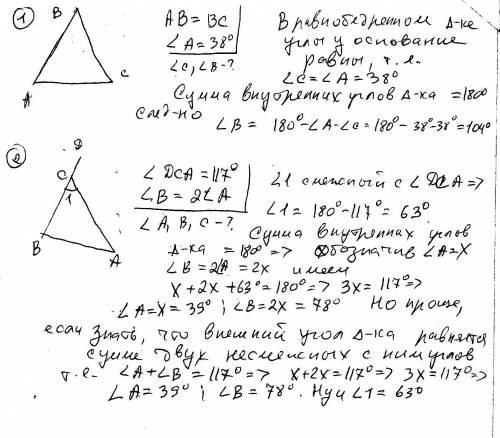 ①
B
A
C
AB = BC
∠A = 38°
∠C, ∠B - ?
В равнобедренном Δ-ке
углы у основание
равны, т.е.
∠C = ∠A = 38°
Сумма внутренних углов Δ-ка = 180°
след-но
∠B = 180° - ∠A - ∠C = 180° - 38° - 38° = 104°
②
D
C
1
B
A
∠DCA = 117°
∠B = 2∠A
∠A, B, C - ?
∠1 смежный с ∠DCA =>
∠1 = 180° - 117° = 63°
Сумма внутренних углов
Δ-ка = 180° => Обозначив ∠A = X
∠B = 2∠A = 2x имеем
x + 2x + 63° = 180° => 3x = 117° =>
∠A = x = 39° ; ∠B = 2x = 78° Но проще,
если знать, что внешний угол Δ-ка равняется
сумме двух несмежных с ним углов
т.е. ∠A + ∠B = 117° => x + 2x = 117° => 3x = 117° =>
∠A = 39° ; ∠B = 78°. Ну и ∠1 = 63°